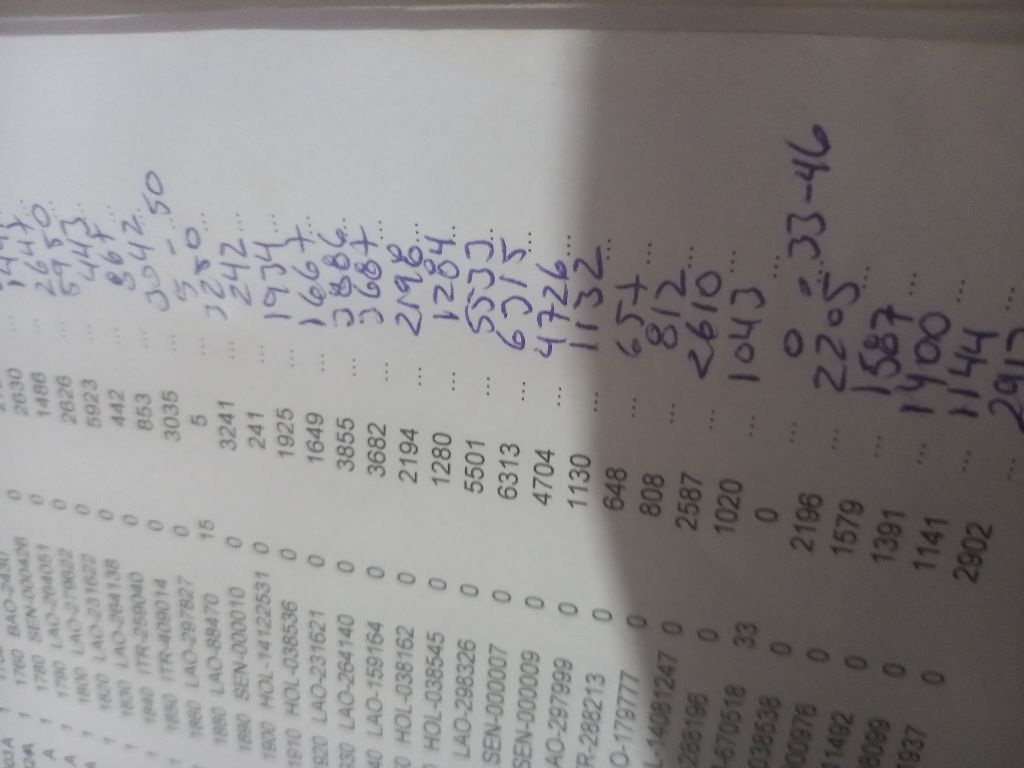 SEN-000426 0
1780 LAO-264051 0 2630 ...
1790 LAO-279622 0 1486
1800 LAO-231622 0 2626 ... 2647
1820 LAO-264138 0 5923 ... 5950
1 1830 LAO-264138 0 442 ... 443
1 1840 ITR-259040 0 853 ... 867
1 1850 ITR-409014 0 3035 ... 3042
1 1860 LAO-297827 0 5 ... 5 - 50
1880 LAO-88470 15 3241 ... 3250
1890 SEN-000010 0 241 ... 242
1900 HOL-14122531 0 1925 ... 1934
1910 HOL-038536 0 1649 ... 1667
920 LAO-231621 0 3855 ... 3886
930 LAO-264140 0 3682 ... 3687
40 LAO-159164 0 2194 ... 2198
0 HOL-038162 0 1280 ... 1284
HOL-038545 0 5501 ... 5533
LAO-298326 0 6313 ... 6315
SEN-000007 0 4704 ... 4726
SEN-000009 0 1130 ... 1132
AO-297999 0 648 ... 657
R-288213 0 808 ... 812
O-179777 0 2587 ... 2610
L-14081247 0 1020 ... 1043
288196 0 0 ... 0 33-46
-670518 33 2196 ... 2205
038538 0 1579 ... 1587
000976 0 1391 ... 1400
11492 0 1141 ... 1144
8099 0 2902 ...
1937 0